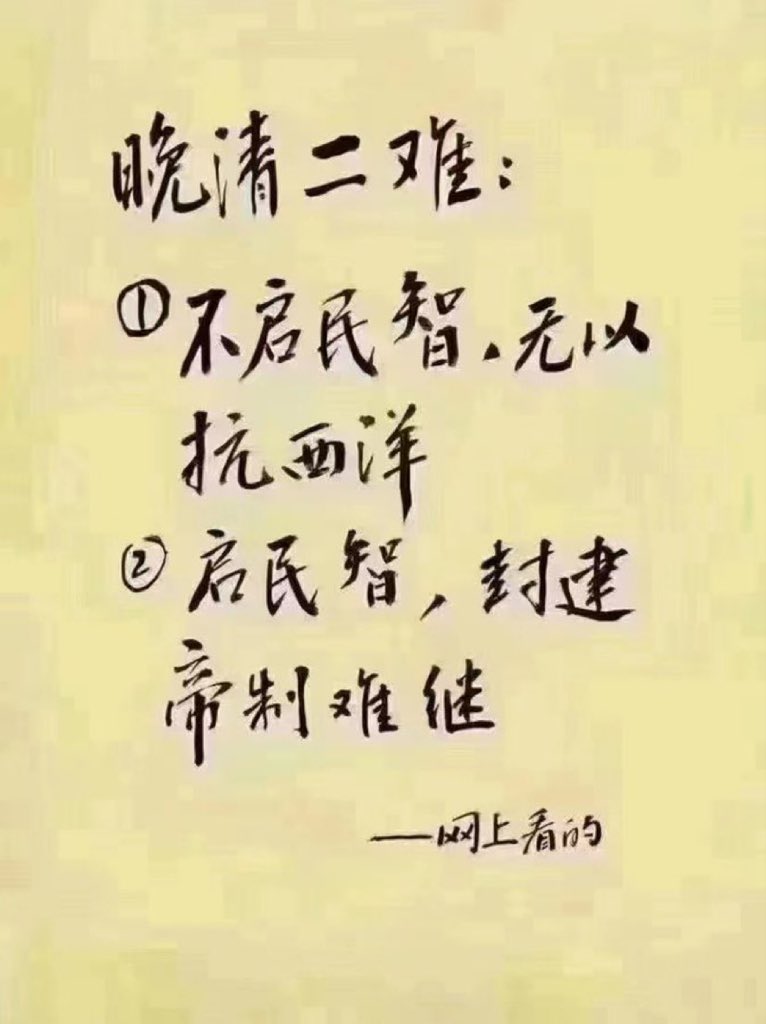 晚清二难：
①不启民智，无以
抗西洋
②启民智，封建
帝制难继
——网上看的